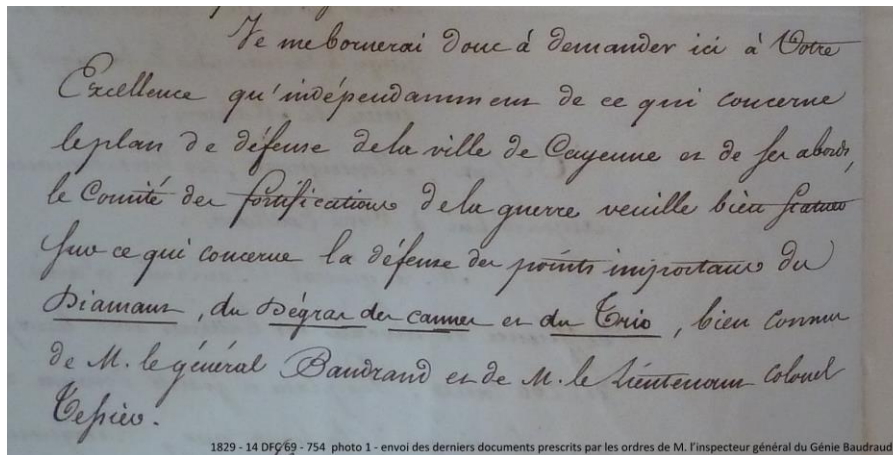 Je me bornerai donc à demander ici à Votre
Excellence qu'indépendamment de ce qui concerne
le plan de défense de la ville de Cayenne et de ses abords,
le Comité des fortifications de la guerre veuille bien statuer
sur ce qui concerne la défense des points importans du
Diamant, du Dégras des cannes et du Trio, bien connus
de M. le général Baudrand et de M. le Lieutenant colonel
1829 - 14 DFC 69 - 754 photo 1 - envoi des derniers documents prescrits par les ordres de M. l'inspecteur général du Génie Baudraud